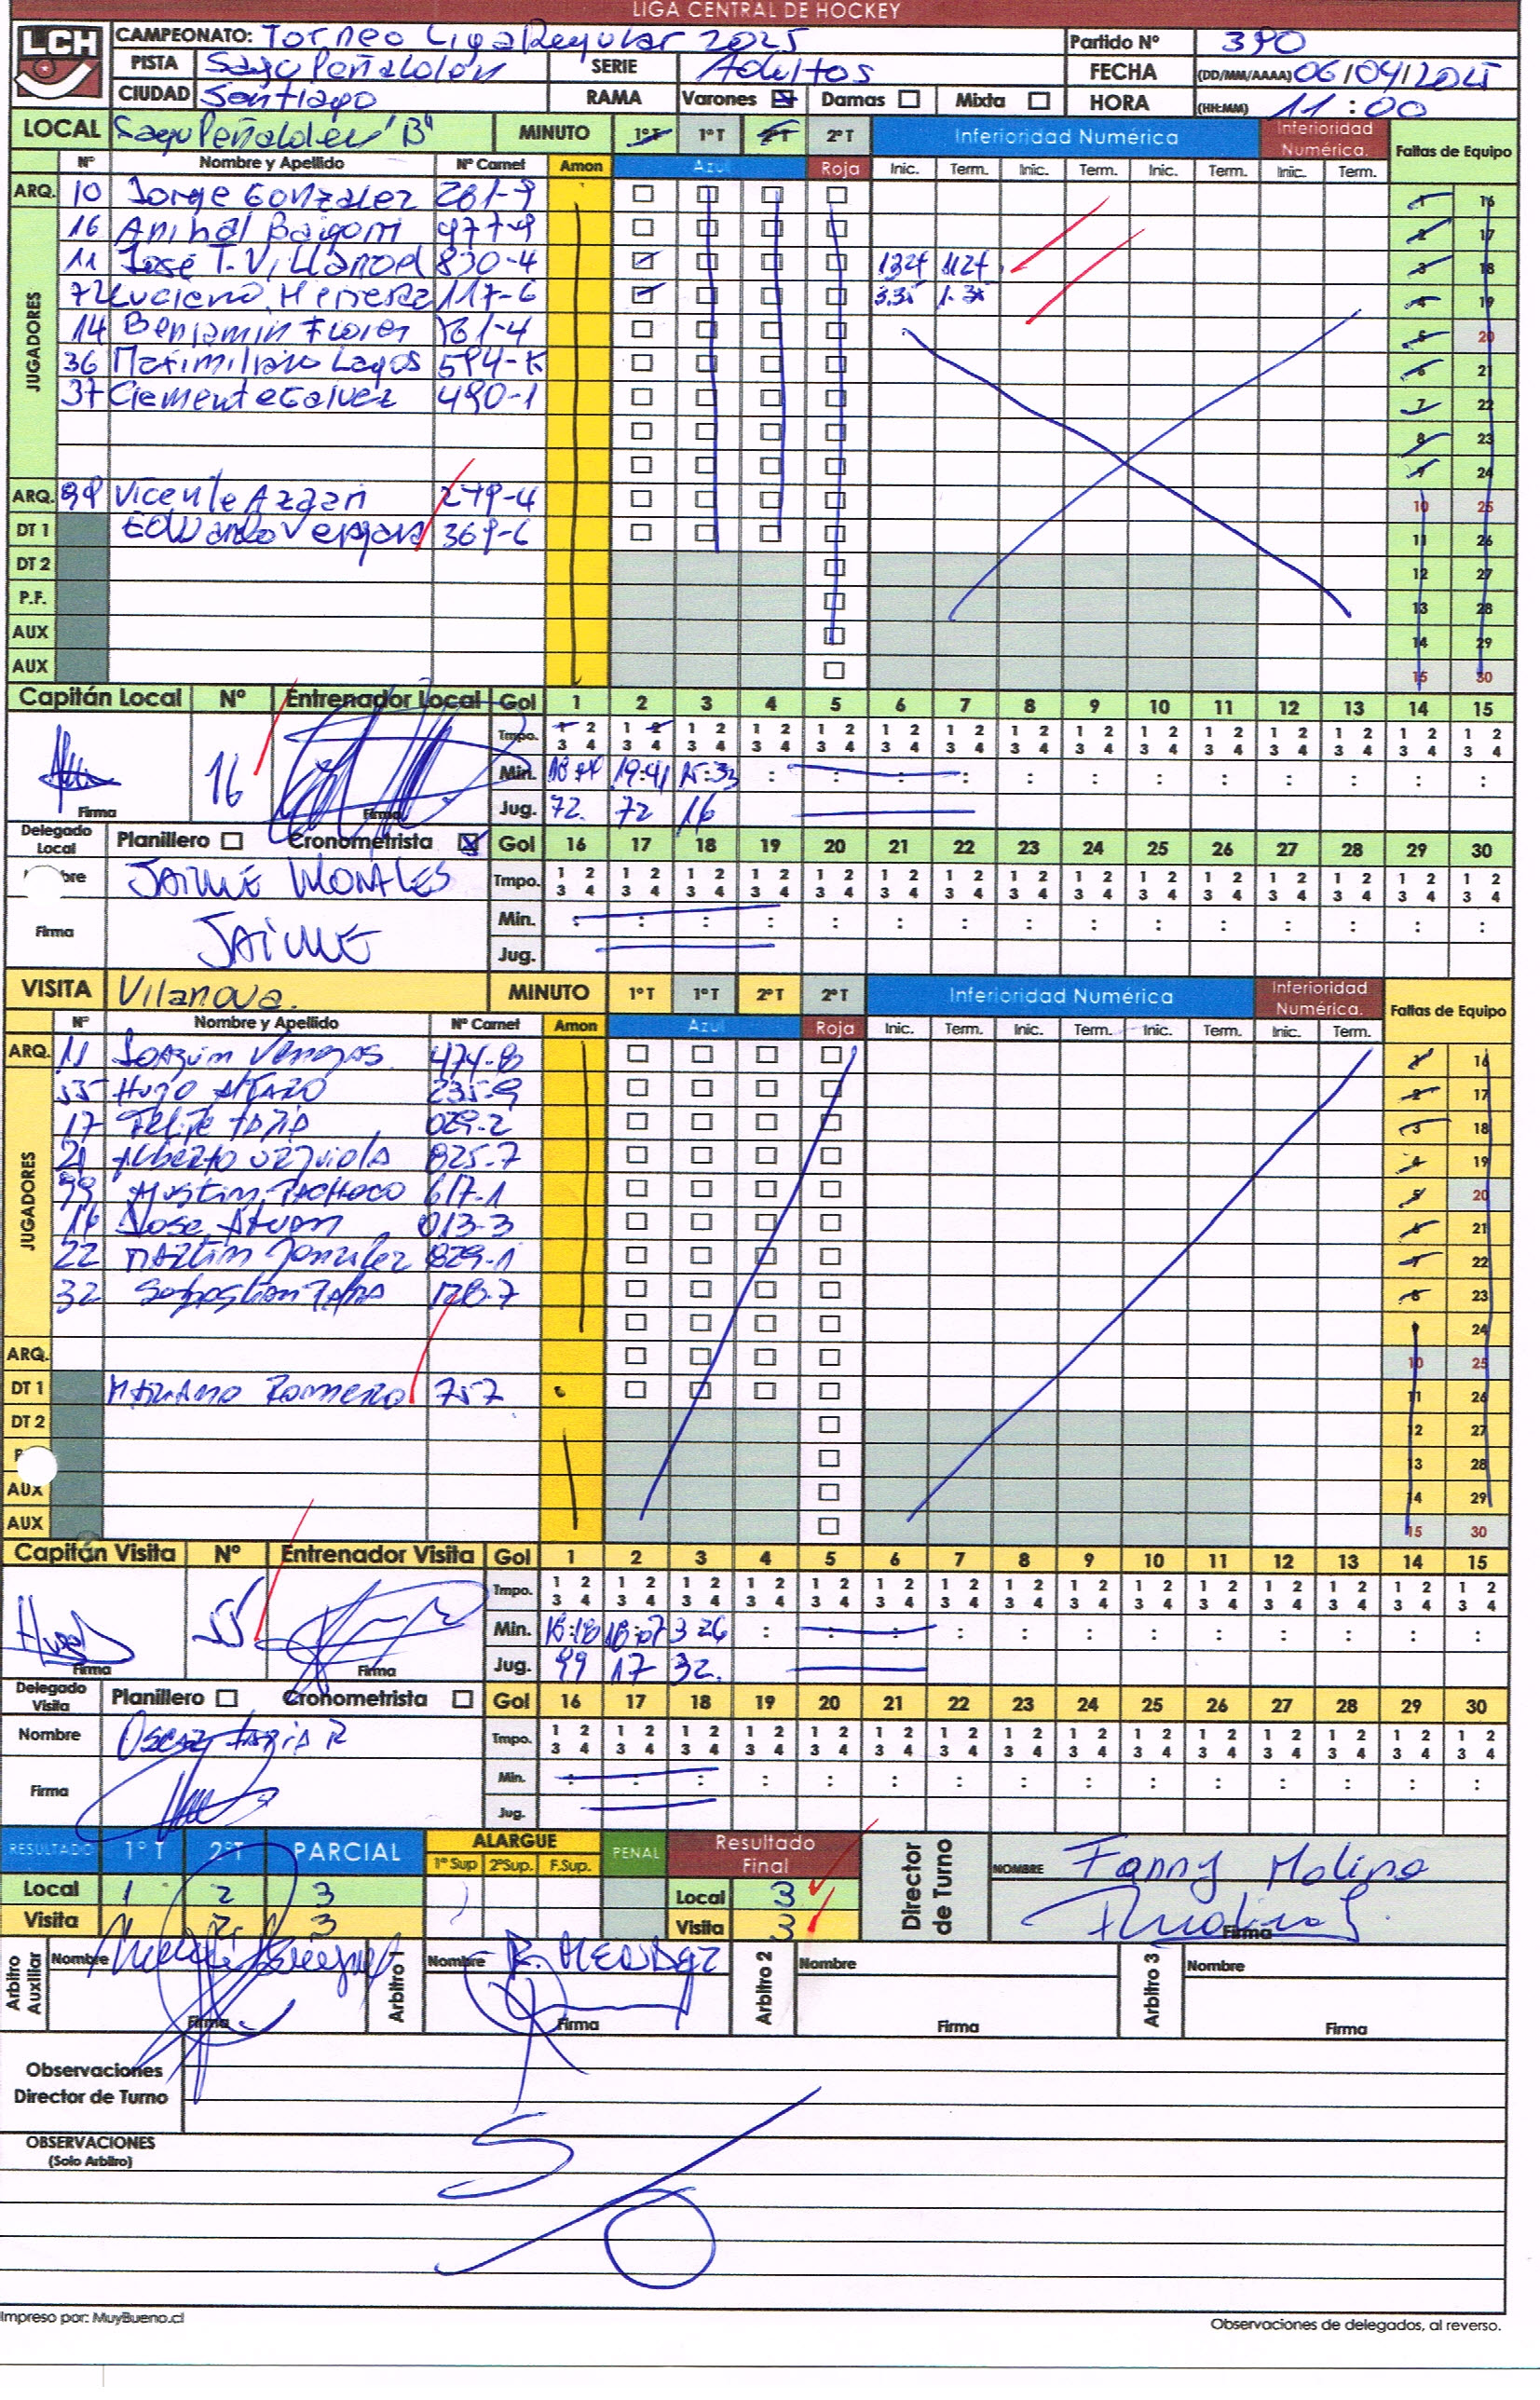 LIGA CENTRAL DE HOCKEY
LCH
CAMPEONATO: Torneo Liga Regular 2025 Partido Nº 390
PISTA Sagu Peñalolén SERIE Adultos FECHA (DD/MM/AAAA) 06/04/2025
CIUDAD Santiago RAMA Varones Damas Mixta HORA (HH:MM) 11:00
LOCAL Sagu Peñalolén "B" MINUTO 1ºT 1ºT 2ºT 2ºT Inferioridad Numérica Inferioridad Numérica. Faltas de Equipo
Nº Nombre y Apellido Nº Carnet Amon Azul Roja Inic. Term. Inic. Term. Inic. Term. Inic. Term.
ARQ. 10 Jorge Gonzalez 261-9 1 16
JUGADORES
16 Anibal Baigorri 977-9 2 17
11 José T. Villarroel 830-4 3 18
72 Luciano Herrera 117-6 4 19
14 Benjamin Flores 5 20
36 Maximiliano Lagos 594-K 6 21
37 Clemente Galvez 490-1 7 22
8 23
9 24
ARQ. 99 Vicente 279-4 10 25
DT 1 Eduardo Vergara 369-6 11 26
DT 2 12 27
P.F. 13 28
AUX 14 29
AUX 15 30
Capitán Local Nº Entrenador Local Gol 1 2 3 4 5 6 7 8 9 10 11 12 13 14 15
Tmpo. 1 2 1 2 1 2 1 2 1 2 1 2 1 2 1 2 1 2 1 2 1 2 1 2 1 2 1 2 1 2
3 4 3 4 3 4 3 4 3 4 3 4 3 4 3 4 3 4 3 4 3 4 3 4 3 4 3 4 3 4
16 Min. 19:41 15:33
Firma Firma Jug. 72 72 16
Delegado Local Planillero Cronometrista Gol 16 17 18 19 20 21 22 23 24 25 26 27 28 29 30
JAIME MORALES Tmpo. 1 2 1 2 1 2 1 2 1 2 1 2 1 2 1 2 1 2 1 2 1 2 1 2 1 2 1 2 1 2
3 4 3 4 3 4 3 4 3 4 3 4 3 4 3 4 3 4 3 4 3 4 3 4 3 4 3 4 3 4
Firma JAIME Min.
Jug.
VISITA Vilanova. MINUTO 1ºT 1ºT 2ºT 2ºT Inferioridad Numérica Inferioridad Numérica. Faltas de Equipo
Nº Nombre y Apellido Nº Carnet Amon Azul Roja Inic. Term. Inic. Term. Inic. Term. Inic. Term.
ARQ. 11 Joaquin Venegas 1 16
JUGADORES
55 Hugo Alfaro 235-9 2 17
17 Felipe Tapia 029-2 3 18
21 Alberto Urzuola 825-7 4 19
99 Agustin Pacheco 617-1 5 20
16 Jose Atuan 013-3 6 21
22 Martin Gonzalez 829-1 7 22
32 Sebastian Tapia 128-7 8 23
24
ARQ. 10 25
DT 1 Mariano Romero 757 11 26
DT 2 12 27
13 28
AUX 14 29
AUX 15 30
Capitán Visita Nº Entrenador Visita Gol 1 2 3 4 5 6 7 8 9 10 11 12 13 14 15
Tmpo. 1 2 1 2 1 2 1 2 1 2 1 2 1 2 1 2 1 2 1 2 1 2 1 2 1 2 1 2 1 2
3 4 3 4 3 4 3 4 3 4 3 4 3 4 3 4 3 4 3 4 3 4 3 4 3 4 3 4 3 4
Hugo 55 Min. 16:18 18:07 3 26
Firma Firma Jug. 99 17 32.
Delegado Visita Planillero Cronometrista Gol 16 17 18 19 20 21 22 23 24 25 26 27 28 29 30
Nombre Oscar Tapia R Tmpo. 1 2 1 2 1 2 1 2 1 2 1 2 1 2 1 2 1 2 1 2 1 2 1 2 1 2 1 2 1 2
3 4 3 4 3 4 3 4 3 4 3 4 3 4 3 4 3 4 3 4 3 4 3 4 3 4 3 4 3 4
Firma Min.
Jug.
RESULTADO 1º T 2ºT PARCIAL ALARGUE 1º Sup 2ºSup. F.Sup. PENAL Resultado Final Director de Turno NOMBRE Fanny Molina
Local 1 2 3 Local 3
Visita 1 2 3 Visita 3 Firma
Arbitro Auxiliar Nombre Arbitro 1 Nombre R. MENDEZ Arbitro 2 Nombre Arbitro 3 Nombre
Firma Firma Firma Firma
Observaciones
Director de Turno
OBSERVACIONES
(Solo Arbitro)
Impreso por: MuyBueno.cl Observaciones de delegados, al reverso.